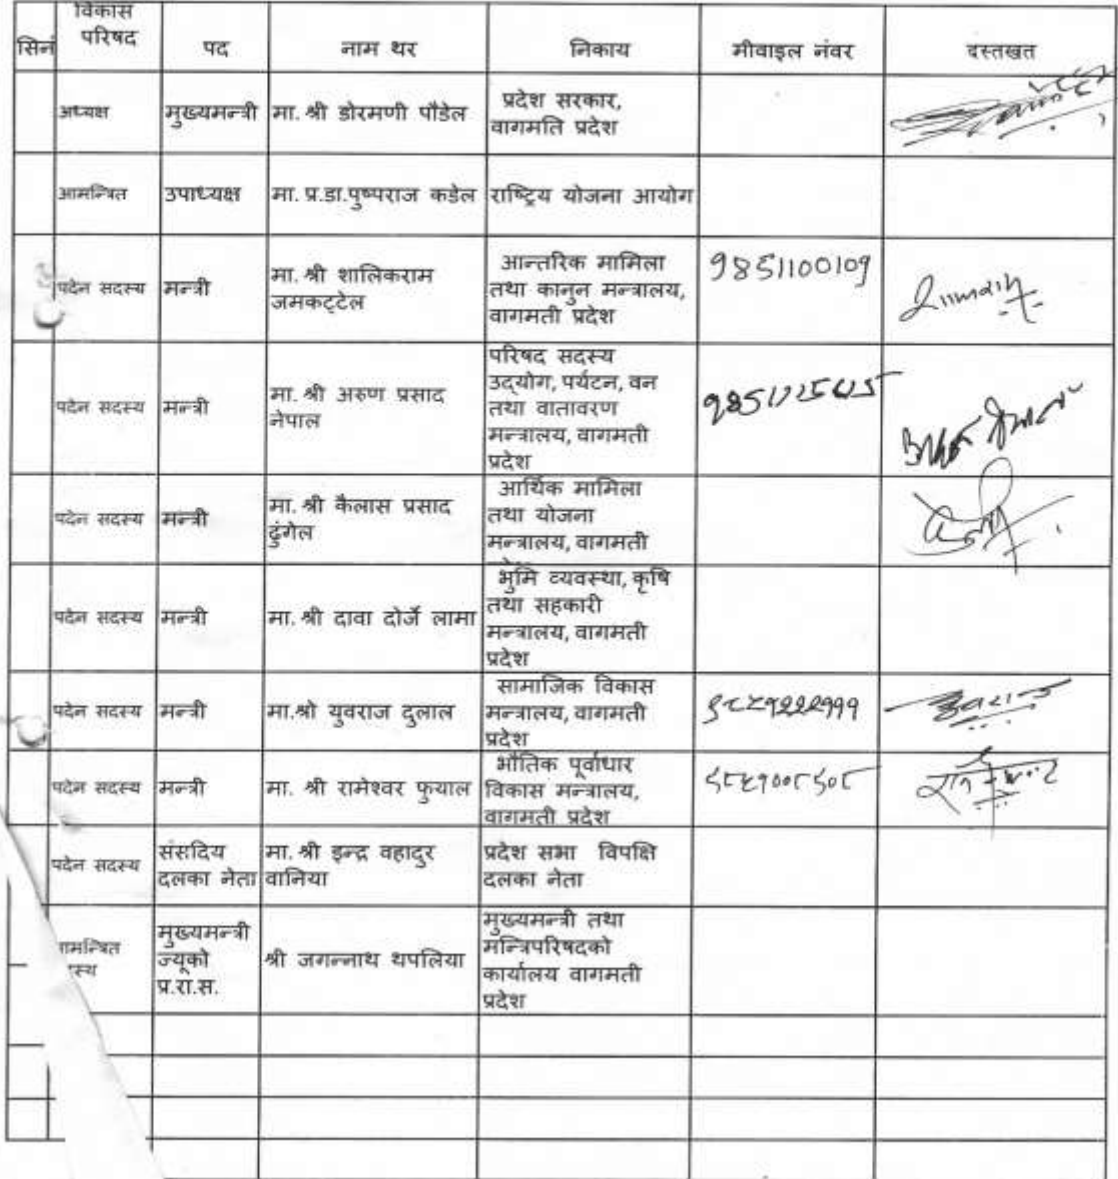 सिनं विकास परिषद पद नाम थर निकाय मोवाइल नंवर दस्तखत
अध्यक्ष मुख्यमन्त्री मा. श्री डोरमणी पौडेल प्रदेश सरकार,
वागमति प्रदेश
आमन्त्रित उपाध्यक्ष मा. प्र.डा.पुष्पराज कडेल राष्ट्रिय योजना आयोग
पदेन सदस्य मन्त्री मा. श्री शालिकराम
जमकट्टेल
आन्तरिक मामिला
तथा कानुन मन्त्रालय,
वागमती प्रदेश
9851100109
पदेन सदस्य मन्त्री मा. श्री अरुण प्रसाद
नेपाल
परिषद सदस्य
उद्योग, पर्यटन, वन
तथा वातावरण
मन्त्रालय, वागमती
प्रदेश
पदेन सदस्य मन्त्री मा. श्री कैलास प्रसाद
ढुंगेल
आर्थिक मामिला
तथा योजना
मन्त्रालय, वागमती
पदेन सदस्य मन्त्री मा. श्री दावा दोर्जे लामा
भुमि व्यवस्था, कृषि
तथा सहकारी
मन्त्रालय, वागमती
प्रदेश
पदेन सदस्य मन्त्री मा.श्री युवराज दुलाल
सामाजिक विकास
मन्त्रालय, वागमती
प्रदेश
पदेन सदस्य मन्त्री मा. श्री रामेश्वर फुयाल
भौतिक पूर्वाधार
विकास मन्त्रालय,
वागमती प्रदेश
पदेन सदस्य संसदिय
दलका नेता
मा. श्री इन्द्र वहादुर
वानिया
प्रदेश सभा विपक्षि
दलका नेता
मुख्यमन्त्री
ज्यूको
प्र.रा.स.
श्री जगन्नाथ थपलिया
मुख्यमन्त्री तथा
मन्त्रिपरिषदको
कार्यालय वागमती
प्रदेश